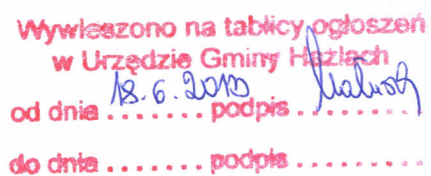 Wywieszono na tablicy ogłoszeń
w Urzędzie Gminy Hażlach
od dnia 18.6.2010 podpis
do dnia ........ podpis .........